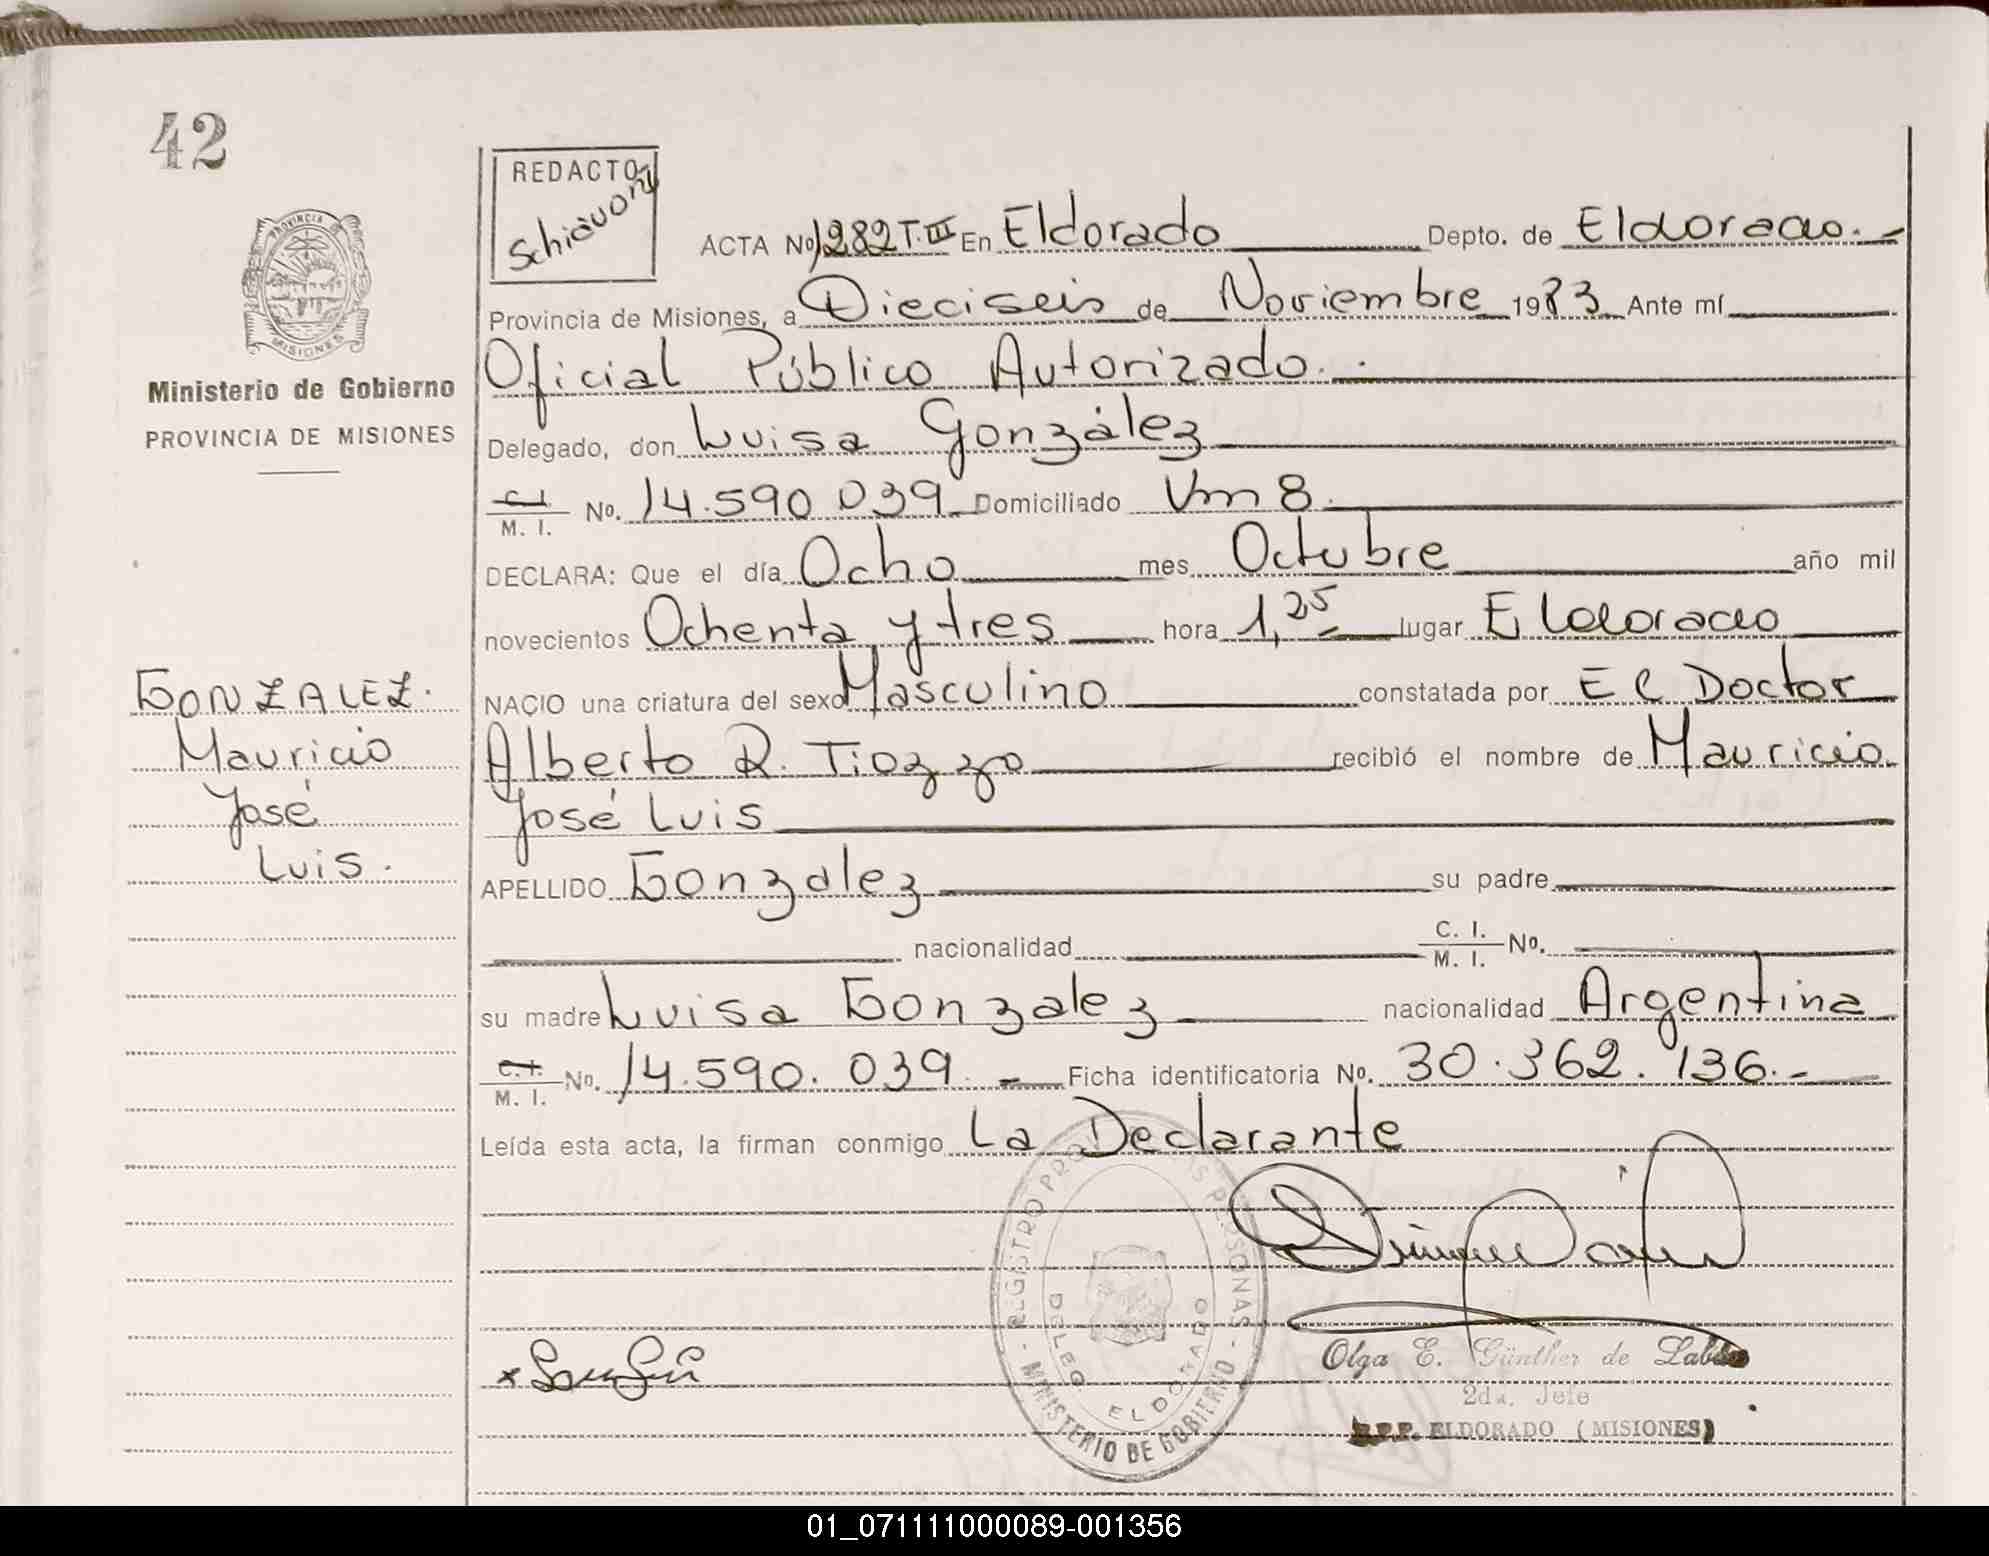 42
REDACTO
Schiavoni
ACTA No 1282 T.III En Eldorado Depto. de Eldorado.-
PROVINCIA
MISIONES
Provincia de Misiones, a Dieciseis de Noviembre 1983 Ante mí
Ministerio de Gobierno
PROVINCIA DE MISIONES
Oficial Público Autorizado.-
Delegado, don Luisa González
C. I. / M. I. No. 14.590 039 Domiciliado Vm 8.
DECLARA: Que el día Ocho mes Octubre año mil
novecientos Ochenta y tres hora 1,25 lugar Eldorado
GONZALEZ.
Mauricio
José
Luis.
NACIO una criatura del sexo Masculino constatada por El Doctor
Alberto R. Tiozzo recibió el nombre de Mauricio
José Luis
APELLIDO Gonzalez su padre
nacionalidad C. I. / M. I. No.
su madre Luisa Gonzalez nacionalidad Argentina
C. I. / M. I. No. 14.590.039.- Ficha identificatoria No. 30.362.136.-
Leída esta acta, la firman conmigo La Declarante
REGISTRO DE LAS PERSONAS
MINISTERIO DE GOBIERNO
DELEG
ELDORADO
Olga E. Günther de
2da. Jefe
R.P.P. ELDORADO (MISIONES)
01_071111000089-001356